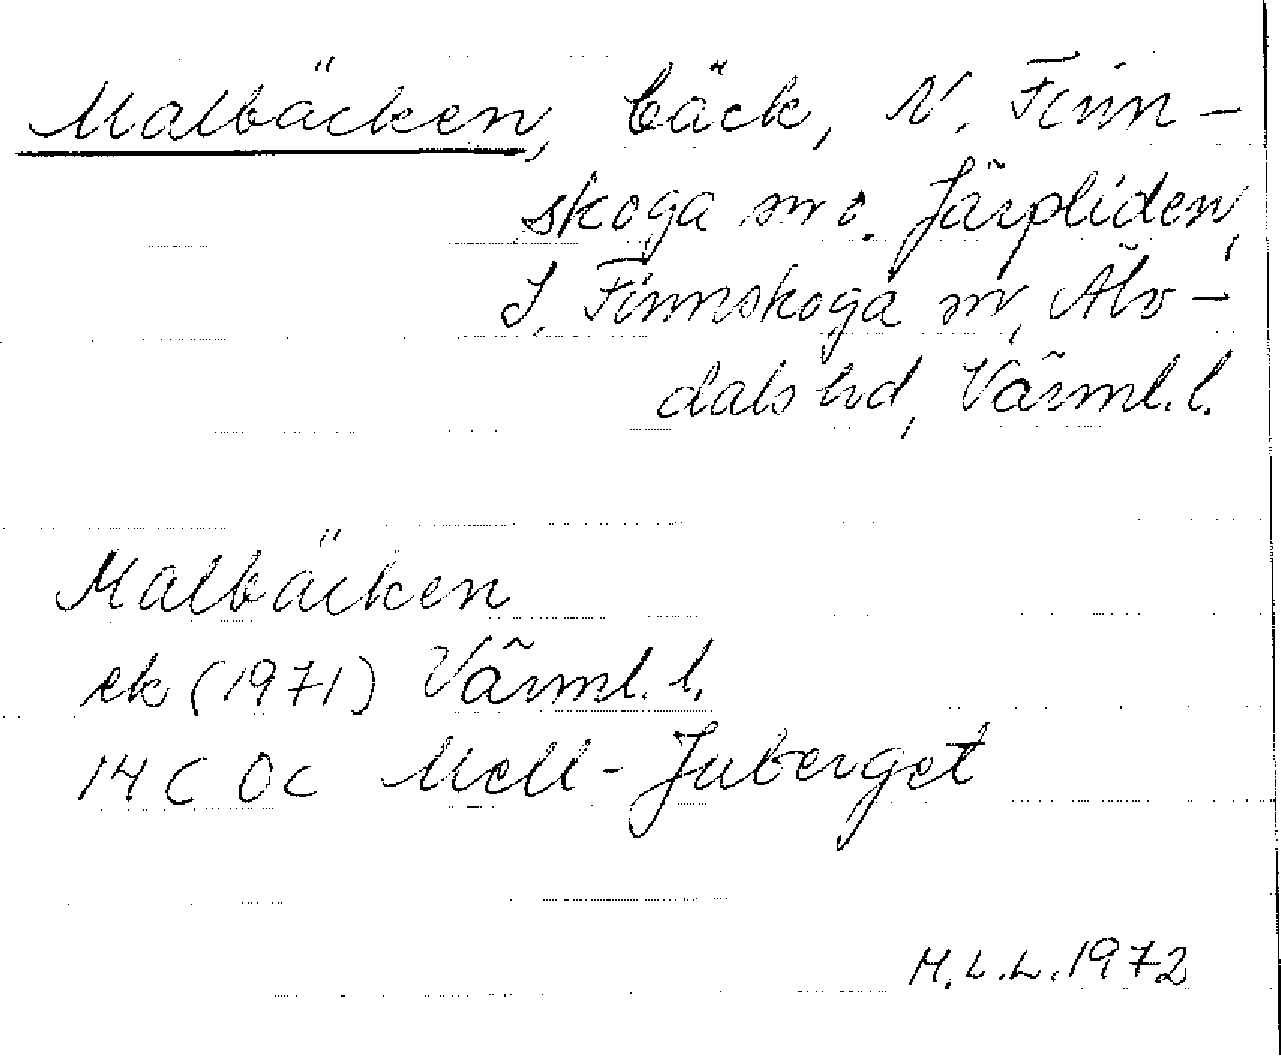 Malbäcken, bäck, N. Finn-
skoga sn o. Järpliden,
S. Finnskoga sn, Älv-
dals hd, Värml. l.
Malbäcken
ek (1971) Värml. l.
14C 0c Mell-Juberget
M.L.L. 1972